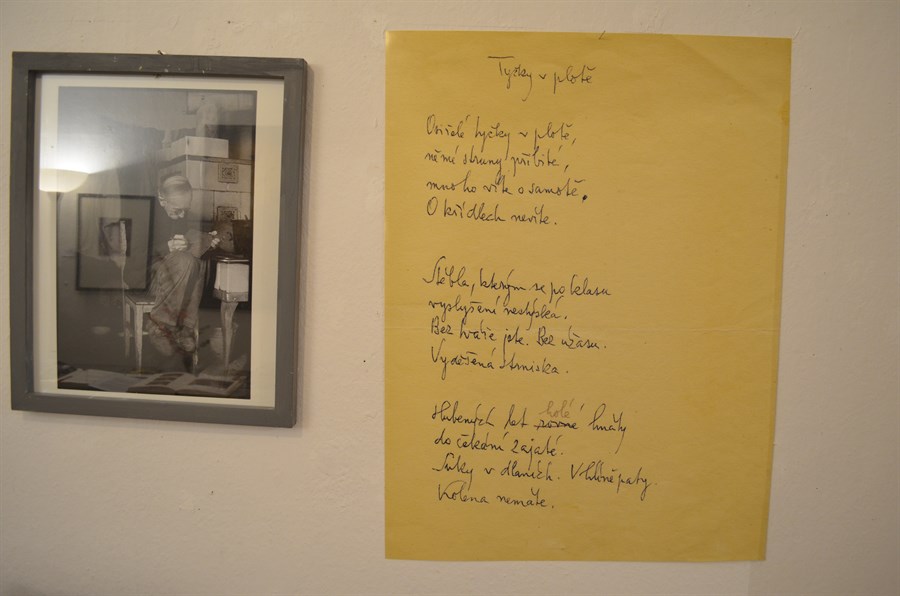 Tyčky v plotě
Osiřelé tyčky v plotě,
němé struny přibité,
mnoho víte o samotě.
O křídlech nevíte.
Stébla, kterým se po klasu
vyslyšení nestýská.
Bez tváře jste. Bez úžasu.
Vyděšená strniska.
Hubených let rovné holé hnáty
do čekání zajaté.
Suky v dlaních. V hlíně paty.
Kolena nemáte.